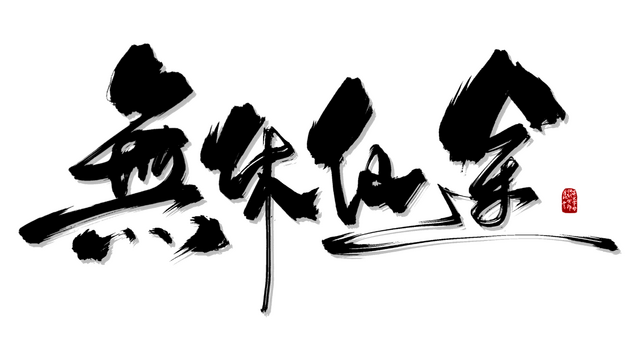 無休仙途